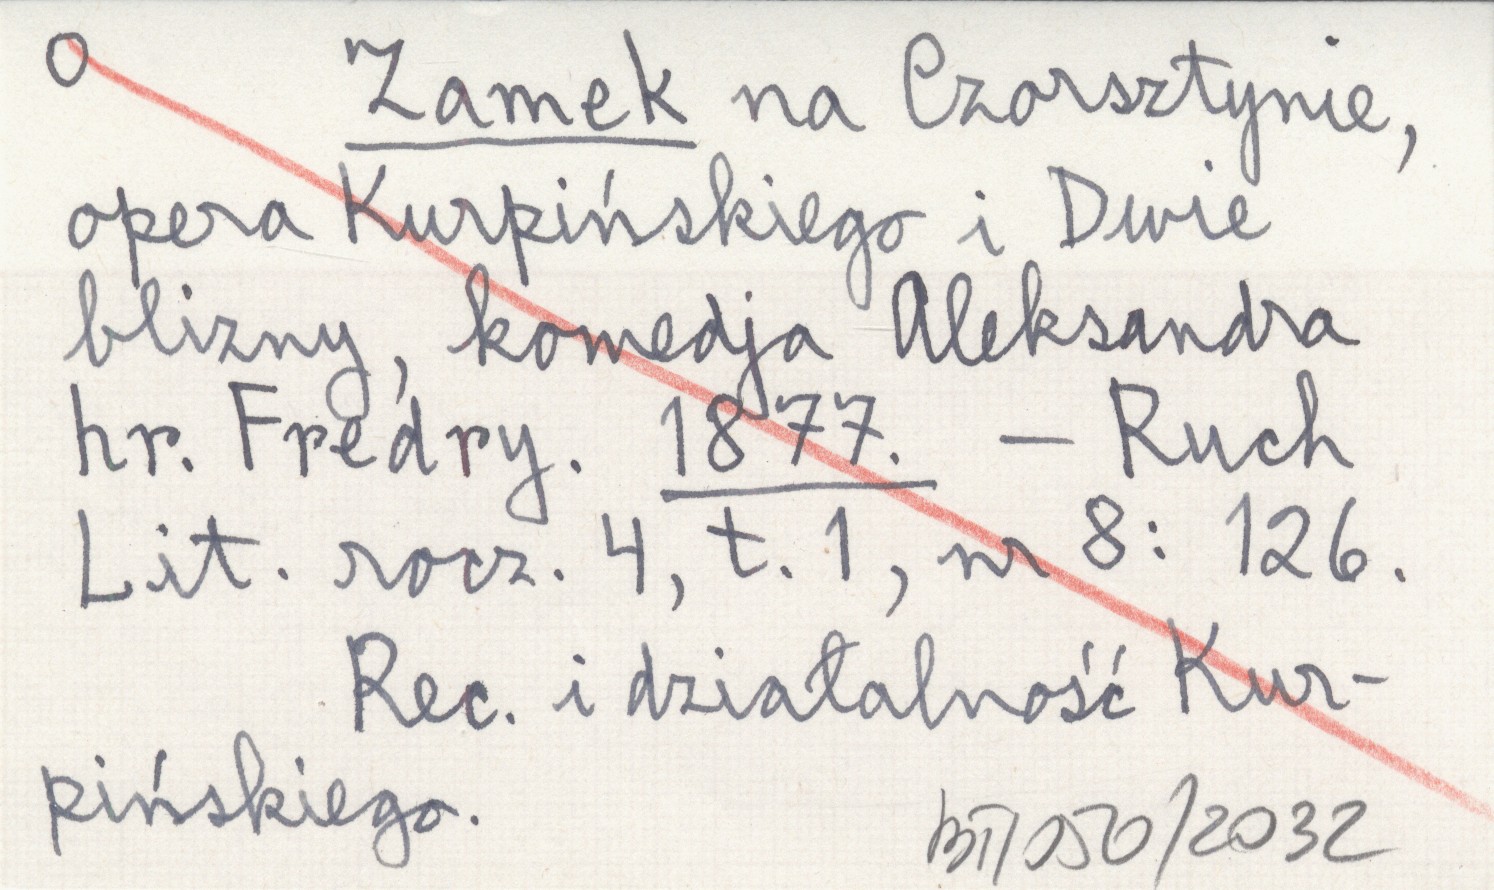 O Zamek na Czorsztynie,
opera Kurpińskiego i Dwie
blizny, komedja Aleksandra
hr. Fredry. 1877. – Ruch
Lit. rocz. 4, t. 1, nr 8: 126.
Rec. i działalność Kur-
pińskiego.
BT/050/2032